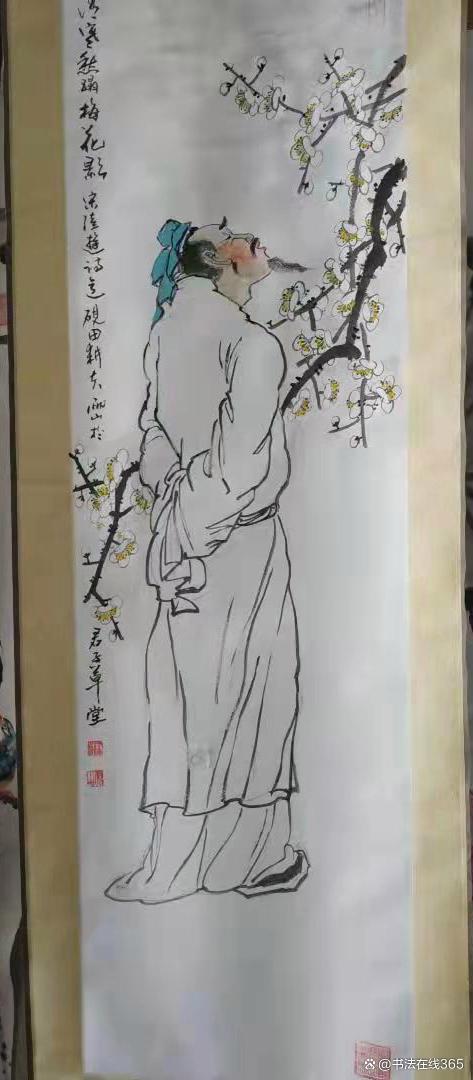 寒愁踏梅花影 宋陆游诗意 砚田耕夫 画于
君子草堂
@书法在线365